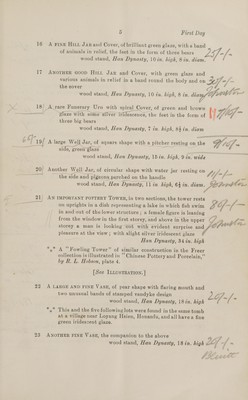 5
First Day
16 A FINE HILL JAR and Cover, of brilliant green glaze, with a band
of animals in relief, the feet in the form of three bears
wood stand, Han Dynasty, 10 in. high, 8 in. diam.
17 ANOTHER GOOD HILL JAR and Cover, with green glaze and
various animals in relief in a band round the body and on
the cover
wood stand, Han Dynasty, 10 in. high, 8 in. diam.
18 A rare FUNERARY URN with spiral Cover, of green and brown
glaze with some silver iridescence, the feet in the form of
three big bears
wood stand, Han Dynasty, 7 in. high, 8½ in. diam
19 A large WELL JAR, of square shape with a pitcher resting on the
side, green glaze
wood stand, Han Dynasty, 15 in. high, 9 in. wide
20 Another WELL JAR, of circular shape with water jar resting on
the side and pigeons perched on the handle
wood stand, Han Dynasty, 11 in. high, 6½ in. diam.
21 AN IMPORTANT POTTERY TOWER, in two sections, the tower rests
on uprights in a dish representing a lake in which fish swim
in and out of the lower structure; a female figure is leaning
from the window in the first storey, and above in the upper
storey a man is looking out with evident surprise and
pleasure at the view; with slight silver iridescent glaze
Han Dynasty, 34 in. high
*** A "Fowling Tower" of similar construction is the Freer
collection is illustrated in "Chinese Pottery and Porcelain,"
by R. L. Hobson, plate 4.
[See ILLUSTRATION.]
22 A LARGE AND FINE VASE, of pear shape with flaring mouth and
two unusual bands of stamped vandyke design
wood stand, Han Dynasty, 18 in. high
*** This and the five following lots were found in the same tomb
at a village near Loyang Hsien, Honanfu, and all have a fine
green iridescent glaze.
23 ANOTHER FINE VASE, the companion to the above
wood stand, Han Dynasty, 18 in. high